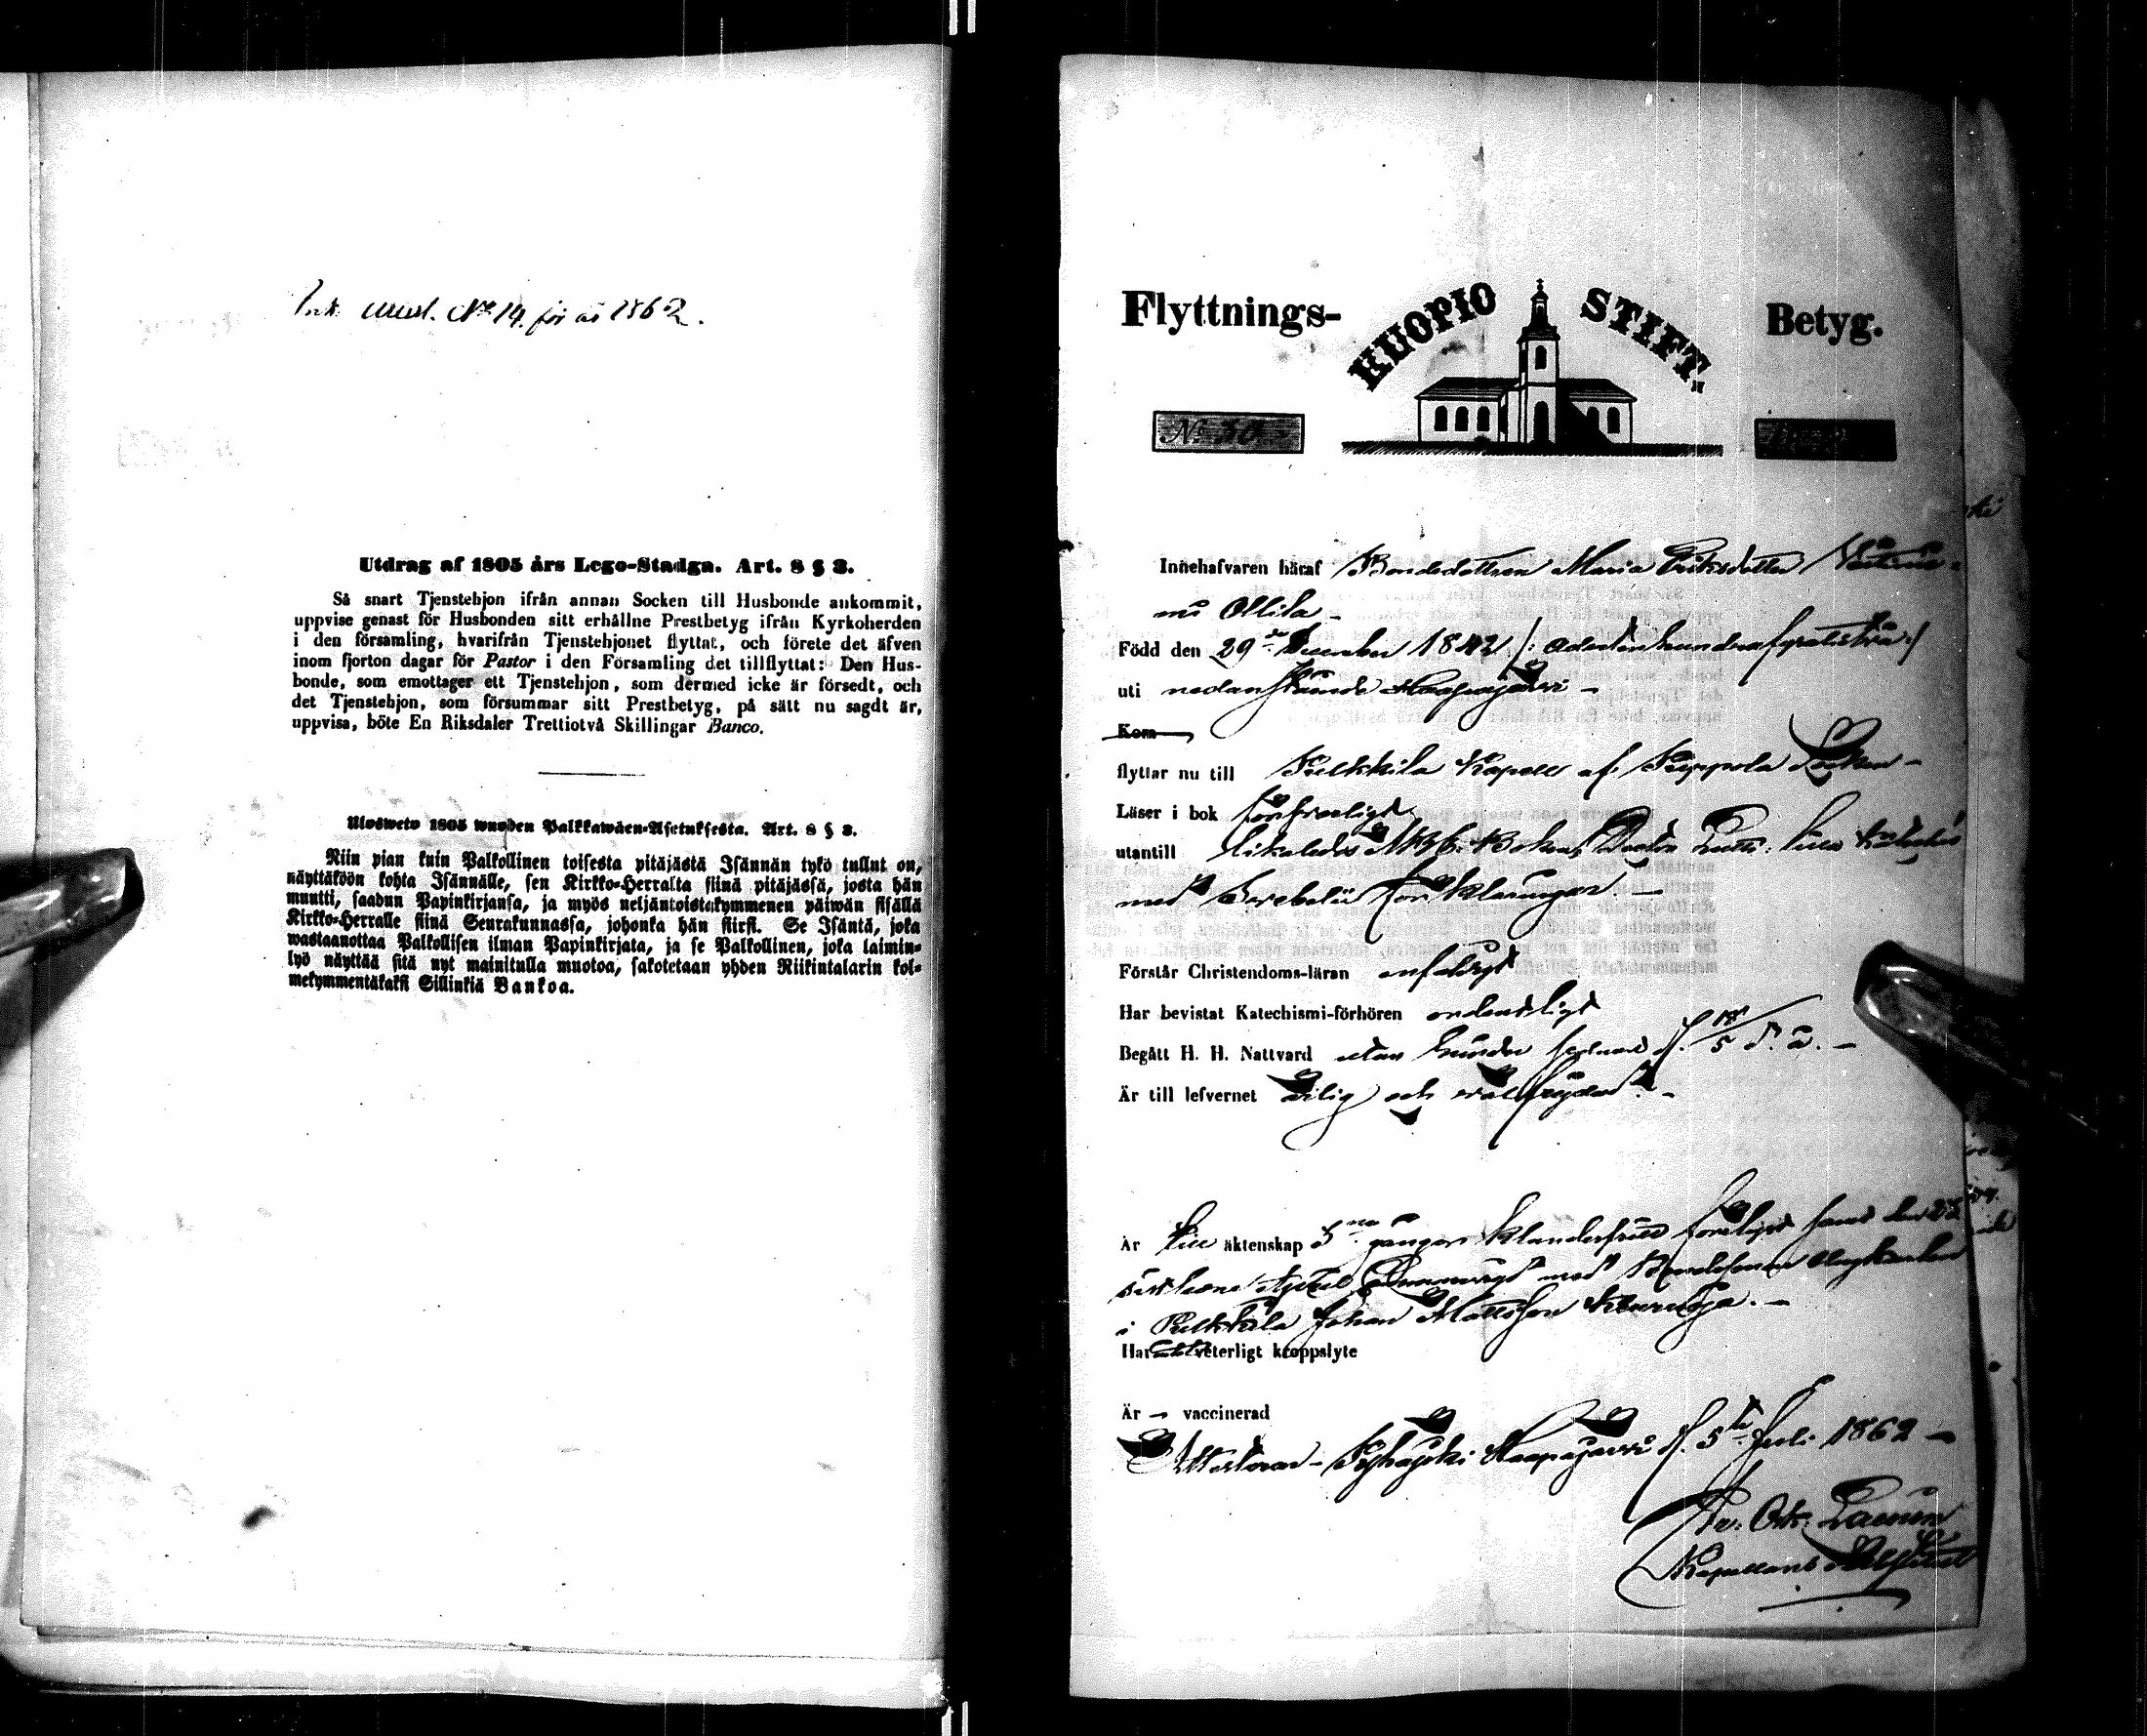 Ink. attest. No 14. för år 1862.
Utdrag af 1805 års Lego-Stadga. Art. 8 § 3.
Så snart Tjenstehjon ifrån annan Socken till Husbonde ankommit,
uppvise genast för Husbonden sitt erhållne Prestbetyg ifrån Kyrkoherden
i den församling, hvarifrån Tjenstehjonet flyttat, och förete det äfven
inom fjorton dagar för Pastor i den Församling det tillflyttat: Den Hus-
bonde, som emottager ett Tjenstehjon, som dermed icke är försedt, och
det Tjenstehjon, som försummar sitt Prestbetyg, på sätt nu sagdt är,
uppvisa, böte En Riksdaler Trettiotvå Skillingar Banco.
Uloswето 1805 wuoden Palkkawäen-Asetuksesta. Art. 8 § 3.
Niin pian kuin Palkollinen toisesta pitäjästä Isännän tykö tullut on,
näyttäköön kohta Isännälle, sen Kirkko-Herralta siinä pitäjässä, josta hän
muutti, saadun Papinkirjansa, ja myös neljäntoistakymmenen päiwän sisällä
Kirkko-Herralle siinä Seurakunnassa, johonka hän siirsi. Se Isäntä, joka
wastaanottaa Palkollisen ilman Papinkirjata, ja se Palkollinen, joka laimin-
lyö näyttää sitä nyt mainitulla muotoa, sakotetaan yhden Riikintalarin kol-
mekymmentäkaksi Sillinkiä Bankoa.
Flyttnings- KUOPIO STIFT. Betyg.
No 30
Innehafvaren häraf Bondedottren Maria Eriksdotter
Ollila
Född den 29de December 1842 /: adertonhundrafyratiotvå :/
uti nedanstående Haapajärvi
Kom
flyttar nu till Pulkkila Kapell af Piippola Socken
Läser i bok försvarligt
utantill Lill Katches
med förklaringar.
Förstår Christendoms-läran enfaldigt
Har bevistat Katechismi-förhören ordentligt
Begått H. H. Nattvard utan hinder senast d. 18/5 d. å.
Är till lefvernet ärlig och välfrejdad.
Är till äktenskap 3ne gånger klanderfritt
med Bondesonen
i Pulkkila Johan Mattsson
Har veterligt kroppslyte
Är vaccinerad
Attesterar Pyhäjoki Haapajärvi d. 5te Juli 1862